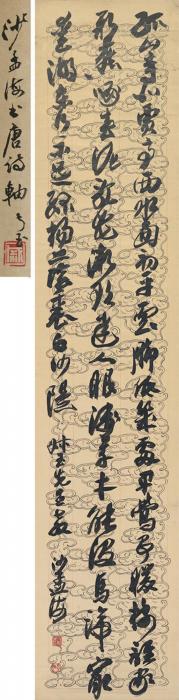 沙孟海書唐詩軸
孤山寺北賈亭西水面初平雲脚低幾處早鶯爭暖樹誰家
新燕啄春泥亂花漸欲迷人眼淺草才能沒馬蹄最
愛湖東行不足綠楊蔭裏白沙隄 先生 教 沙孟海